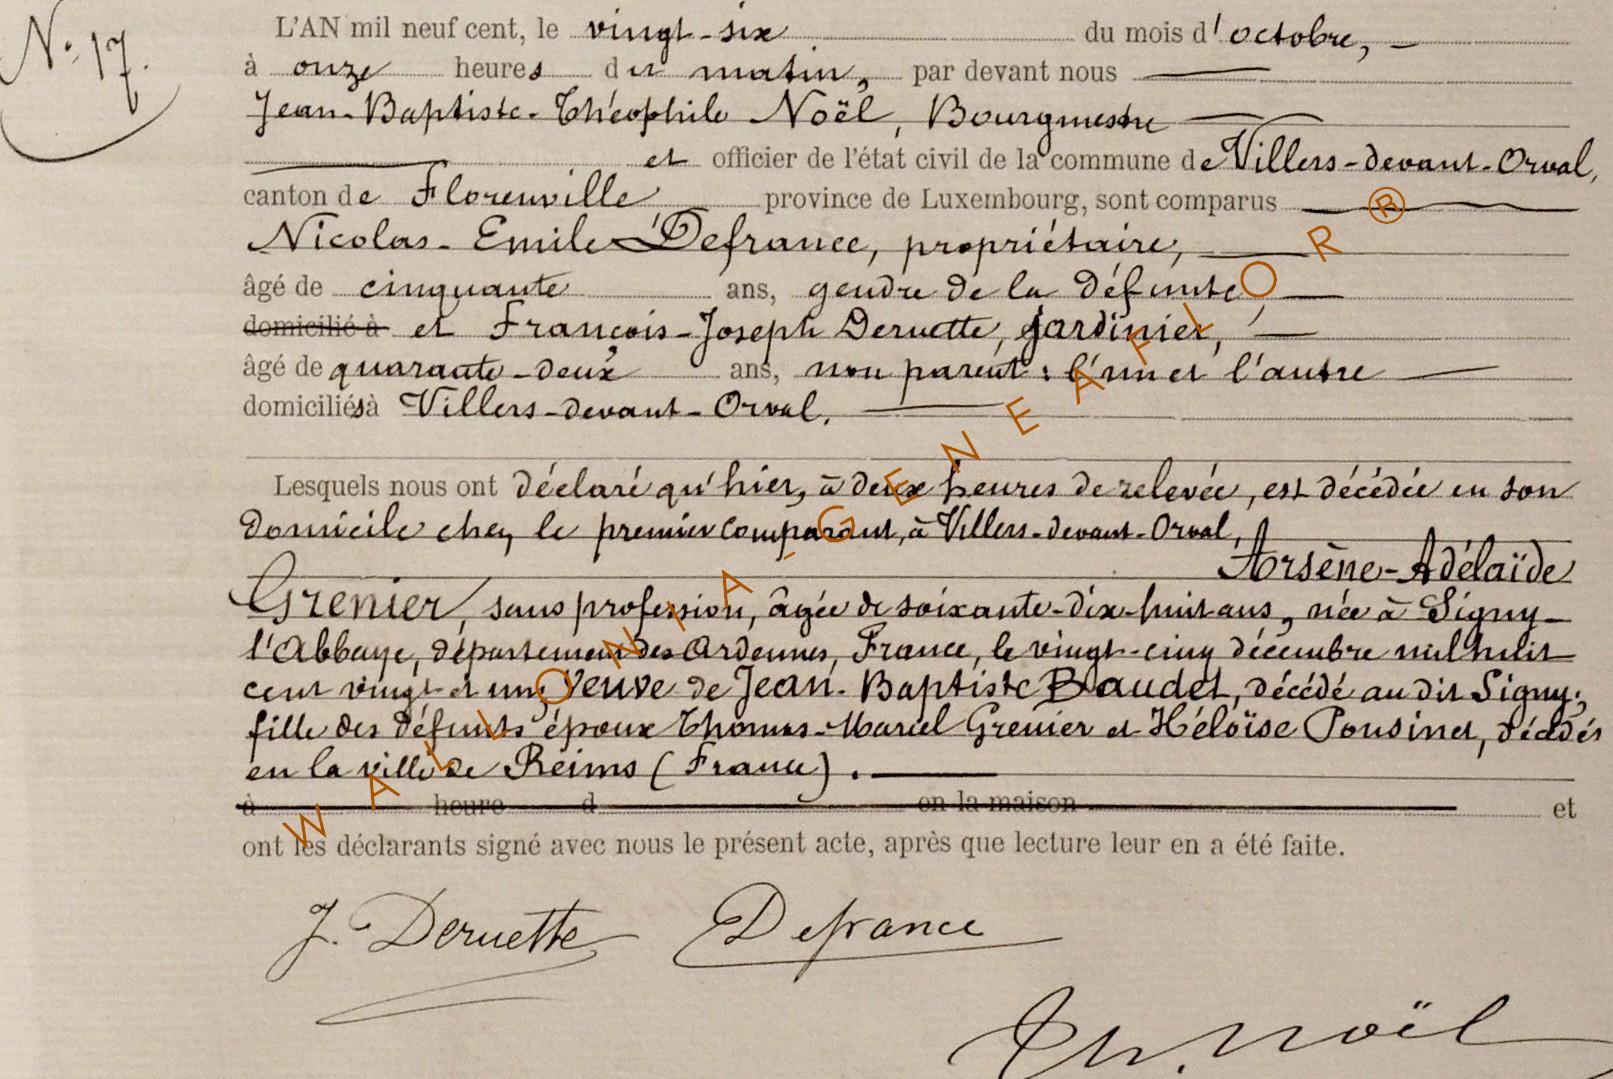 N° 17.
L'AN mil neuf cent, le vingt-six du mois d'octobre,
à onze heures du matin, par devant nous
Jean-Baptiste-Théophile Noël, Bourgmestre
et officier de l'état civil de la commune de Villers-devant-Orval,
canton de Florenville province de Luxembourg, sont comparus
Nicolas-Emile Defrance, propriétaire,
âgé de cinquante ans, gendre de la défunte,
domicilié à et François-Joseph Deruette, jardinier,
âgé de quarante-deux ans, non parent : l'un et l'autre
domiciliés à Villers-devant-Orval.
Lesquels nous ont déclaré qu'hier, à deux heures de relevée, est décédée en son
domicile chez le premier comparant, à Villers-devant-Orval,
Arsène-Adélaïde
Grenier, sans profession, âgée de soixante-dix-huit ans, née à Signy-
l'Abbaye, département des Ardennes, France, le vingt-cinq décembre mil huit
cent vingt et un, Veuve de Jean-Baptiste Baudet, décédé au dit Signy;
fille des défunts époux Thomas-Marcel Grenier et Héloïse Ponsinet, décédés
en la ville de Reims (France).
à heure d en la maison et
ont les déclarants signé avec nous le présent acte, après que lecture leur en a été faite.
J. Deruette Defrance
Th. Noël
WALLONIA-GENEAFLOR ®